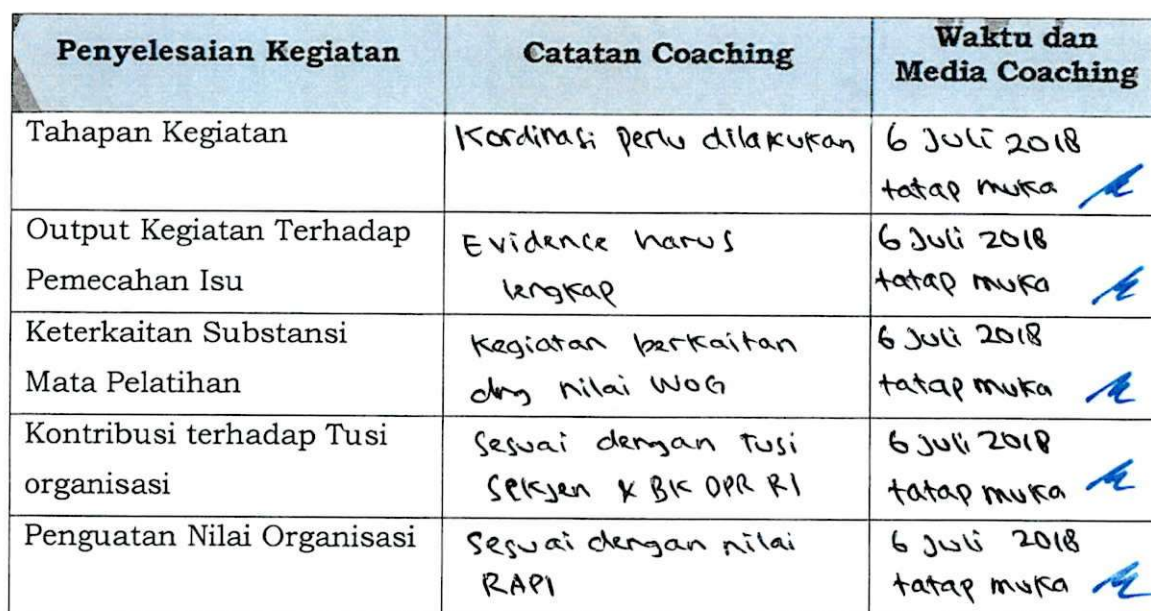 Penyelesaian Kegiatan
Catatan Coaching
Waktu dan
Media Coaching
Tahapan Kegiatan
Kordinasi perlu dilakukan
6 Juli 2018
tatap muka
Output Kegiatan Terhadap
Pemecahan Isu
Evidence harus
lengkap
6 Juli 2018
tatap muka
Keterkaitan Substansi
Mata Pelatihan
Kegiatan berkaitan
dng nilai WoG
6 Juli 2018
tatap muka
Kontribusi terhadap Tusi
organisasi
Sesuai dengan tusi
Sekjen & BK DPR RI
6 Juli 2018
tatap muka
Penguatan Nilai Organisasi
Sesuai dengan nilai
RAPI
6 Juli 2018
tatap muka